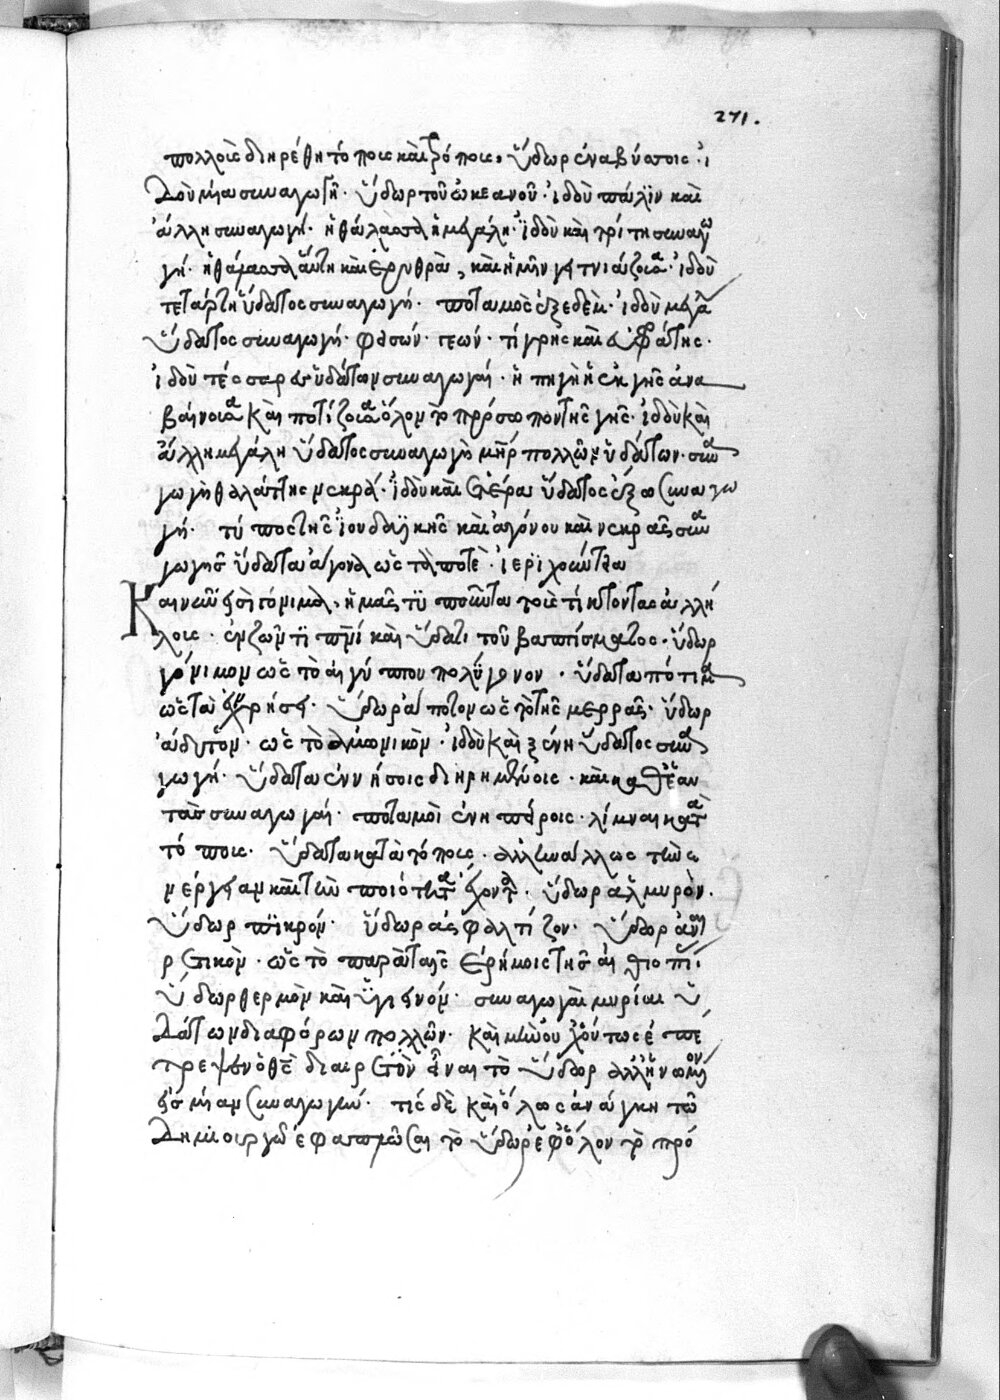 271.
πολλοῖς διηρέθη τόποις καὶ τρόποις, ὕδωρ ἐν ἀβύσσοις· ἰ
δοὺ μία συναγωγή· ὕδωρ τοῦ ὠκεανοῦ· ἰδοὺ πάλιν καὶ
ἄλλη συναγωγή· ἡ θάλασσα ἡ μεγάλη· ἰδοὺ καὶ τρίτη συναγω
γή· ἡ θάλασσα αὕτη καὶ ἐρυθρὰ, καὶ ἡ μὴν γειτνιάζουσα· ἰδοὺ
τετάρτη ὕδατος συναγωγή· ποταμὸς ἐξ ἐδέμ· ἰδοὺ μεγάλα
ὕδατος συναγωγή· φεισών· γεών· τίγρης καὶ εὐφράτης·
ἰδοὺ τέσσαρες ὑδάτων συναγωγαί· ἡ πηγὴ ἡ ἐκ γῆς ἀνα
βαίνουσα καὶ ποτίζουσα ὅλον τὸ πρόσωπον τῆς γῆς· ἰδοὺ καὶ
ἄλλη μεγάλη ὕδατος συναγωγὴ μήτηρ πολλῶν ὑδάτων· συνα
γωγὴ θαλάττης νεκρά· ἰδοὺ καὶ ἑτέρα ὕδατος ἔξω συναγω
γή· τύπος τῆς ἰουδαϊκῆς καὶ ἀγόνου καὶ νεκρᾶς συνα
γωγῆς ὕδατα ἄγονα ὡς τὰ ποτὲ· ἱεριχούντια
καινωθέντα γόνιμα, ἡμᾶς τυποῦντα τοῖς τίκτοντας ἀλλή
λοις· ἐν ζῶντι πνι καὶ ὕδατι τοῦ βαπτίσματος· ὕδωρ
γόνιμον ὡς τὸ αἰγύπτου πολύγονον· ὕδατα πότιμα
ὡς τὰ εὐφρήσει· ὕδωρ ἄποτον ὡς τὸ τῆς μερρᾶς· ὕδωρ
ἄδυτον· ὡς τὸ σοδομικὸν· ἰδοὺ καὶ ξένη ὕδατος συνα
γωγή· ὕδατα ἐν νήσοις διηρημένοις· καὶ καθ' ἕκασ
τας συναγωγαί· ποταμοὶ ἐν ἠπείροις· λίμναι κατὰ
τόπους· ὕδατα κατὰ τόπους· ἄλλην ἄλλως τινὰ
ἐνέργειαν καὶ τὴν ποιότητα ἔχοντα· ὕδωρ ἁλμυρὸν·
ὕδωρ πικρόν· ὕδωρ ἀσφαλτίζον· ὕδωρ ἀντι
ρετικὸν· ὡς τὸ παρὰ ταῖς ἐρήμοις τῆς αἰθιοπίας
ὕδωρ θερμὸν καὶ ὑγιεινόν· συναγωγαὶ μυρίαι ὑ
δάτων διαφόρων πολλῶν· καὶ μὴν οὐχ οὕτως ἐπέ
τρεψεν ὁ θεὸς διαιρετὸν εἶναι τὸ ὕδωρ ἀλλ' ἡνωμένον
εἰς μίαν συναγωγήν· τίς δὲ καὶ ὅλως ἀνάγκη τῶ
δημιουργῶ ἐφαπλῶσαι τὸ ὕδωρ ἐφ' ὅλον τὸ πρό